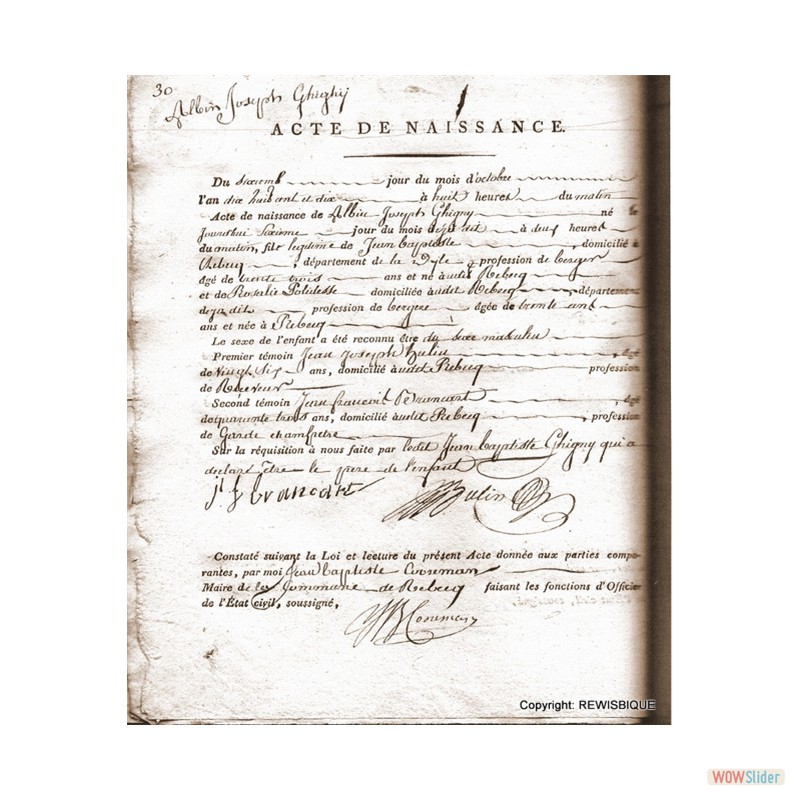 30
Albin Joseph Ghighy
ACTE DE NAISSANCE.
Du sixieme jour du mois d'octobre
l'an dix huit cent et dix à huit heures du matin
Acte de naissance de Albin Joseph Ghigny né le
Jourdhui sixieme jour du mois deja dit à deux heures
du matin, fils legitime de Jean baptiste , domicilié à
Rebecq , département de la Dyle , profession de berger
âgé de trente trois ans et né àudit Rebecq
et de Rosalie domiciliée àudit Rebecq , département
deja dit profession de bergere âgée de trente ans
ans et née à Rebecq
Le sexe de l'enfant a été reconnu être du sexe masculin
Premier témoin Jean Joseph , âgé
de vingt six ans, domicilié àudit Rebecq profession
de Receveur
Second témoin Jean francois Brancart , âgé
de quarante trois ans, domicilié àudit Rebecq , profession
de Garde champetre
Sur la réquisition à nous faite par ledit Jean baptiste Ghigny qui a
declaré être le pere de l'enfant
j f brancart
Constaté suivant la Loi et lecture du présent Acte donnée aux parties compa-
rantes, par moi Jean baptiste Cooreman
Maire de la Commune de Rebecq faisant les fonctions d'Officier
de l'État civil, soussigné,
JB Cooreman
Copyright: REWISBIQUE
WOWSlider